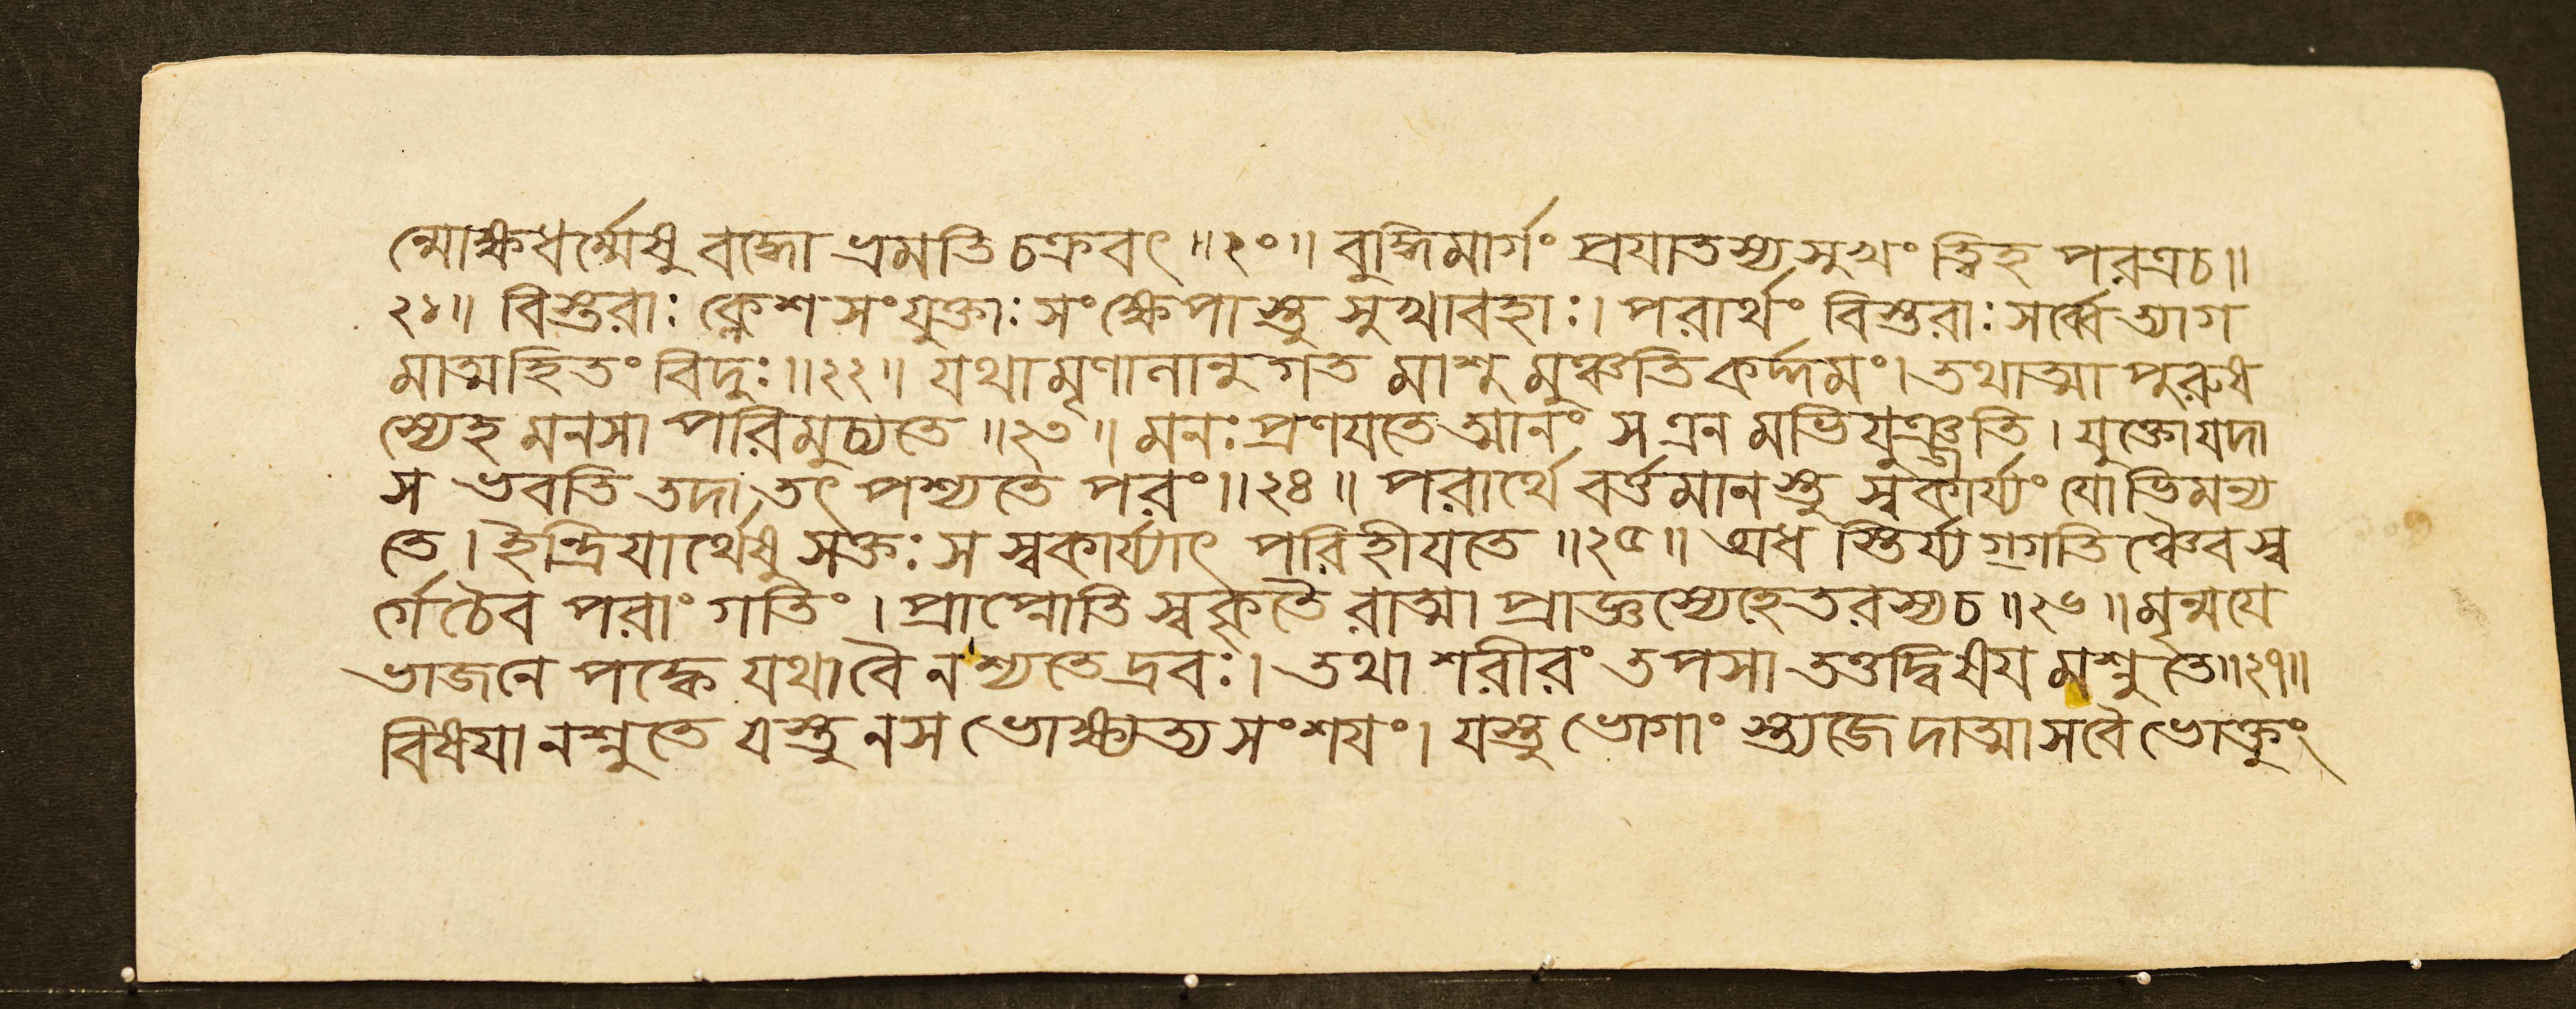 ন্মোক্ষধর্ম্মেষু বদ্ধো ভ্রমতি চক্রবৎ ॥২০॥ বুদ্ধিমার্গং প্রযাতস্য সুখং ত্বিহ পরত্রচ॥
২১॥ বিস্তরাঃ ক্লেশসংযুক্তাঃ সংক্ষেপাস্তু সুখাবহাঃ। পরার্থং বিস্তরাঃ সর্ব্বে ত্যাগ
মাত্মহিতং বিদুঃ॥২২॥ যথা মৃণানানুগত মাশু মুঞ্চতি কর্দ্দমং। তথাত্মা পুরুষ
স্যেহ মনসা পরিমুচ্যতে ॥২৩॥ মনঃ প্রণযতেত্মানং স এন মভিযুঞ্জতি। যুক্তো যদা
স ভবতি তদা তৎ পশ্যতে পরং॥২৪॥ পরার্থে বর্ত্তমানস্তু স্বকার্য্যং যোভিমন্য
তে। ইন্দ্রিযার্থেষু সক্তঃ স স্বকার্য্যাৎ পরিহীযতে ॥২৫॥ অধ স্তির্য্যগ্গতিঞ্চৈব স্ব
র্গেচৈব পরাং গতিং। প্রাপ্নোতি স্বকৃতৈ রাত্মা প্রাজ্ঞস্যেহেতরস্যচ॥২৬॥ মৃন্মযে
ভাজনে পক্কে যথাবৈ নশ্যতে দ্রবঃ। তথা শরীরং তপসা তপ্তদ্বিষয মশ্নুতে॥২৭॥
বিষযা নশ্নুতে যস্তু নস ভোক্ষ্যত্য সংশযং। যস্তু ভোগাং স্ত্যজেদাত্মা সবৈ ভোক্তুং